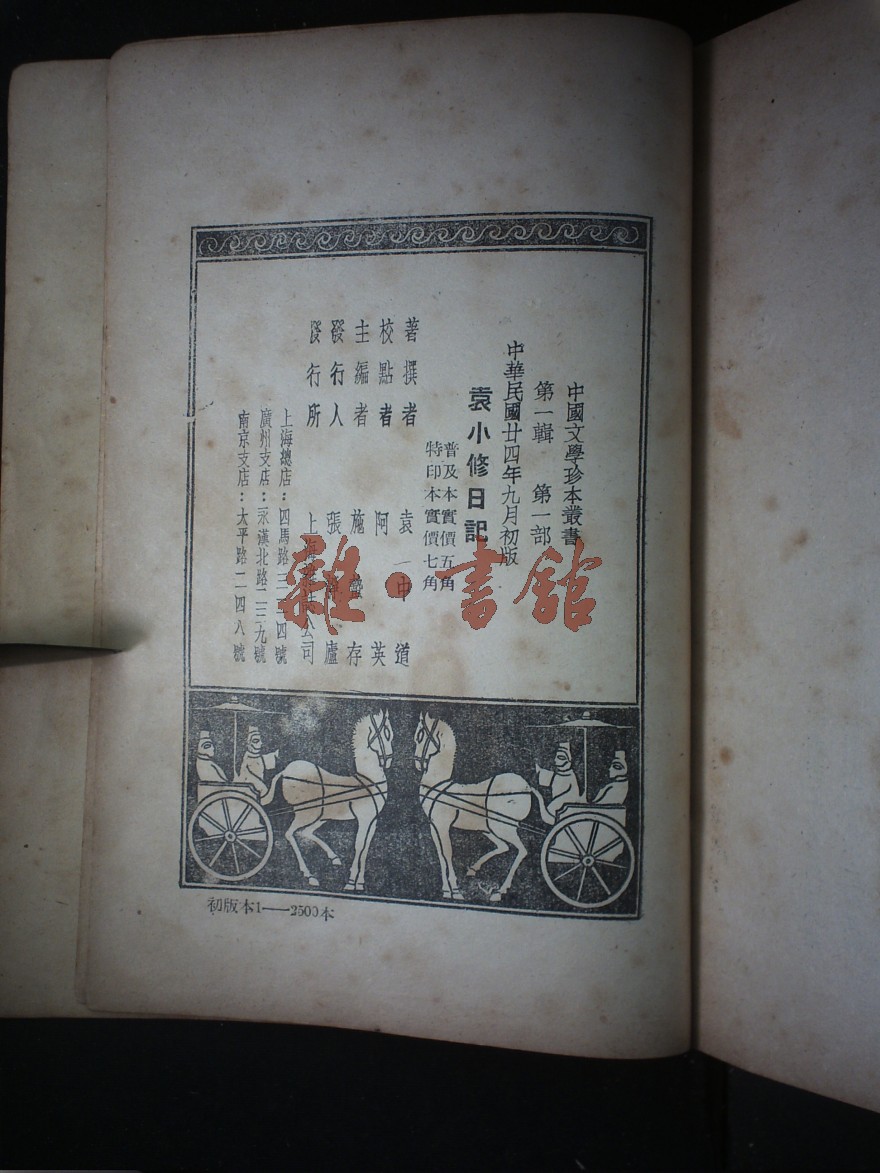 中國文學珍本叢書
第一輯 第一部
中華民國廿四年九月初版
袁小修日記
普及本實價五角
特印本實價七角
著撰者 袁中道
校點者 阿英
主編者 施蟄存
發行人 張盧
發行所 上海公司
上海總店：四馬路三四號
廣州支店：永漢北路二二九號
南京支店：太平路二四八號
初版本1——2500本
雜·書館